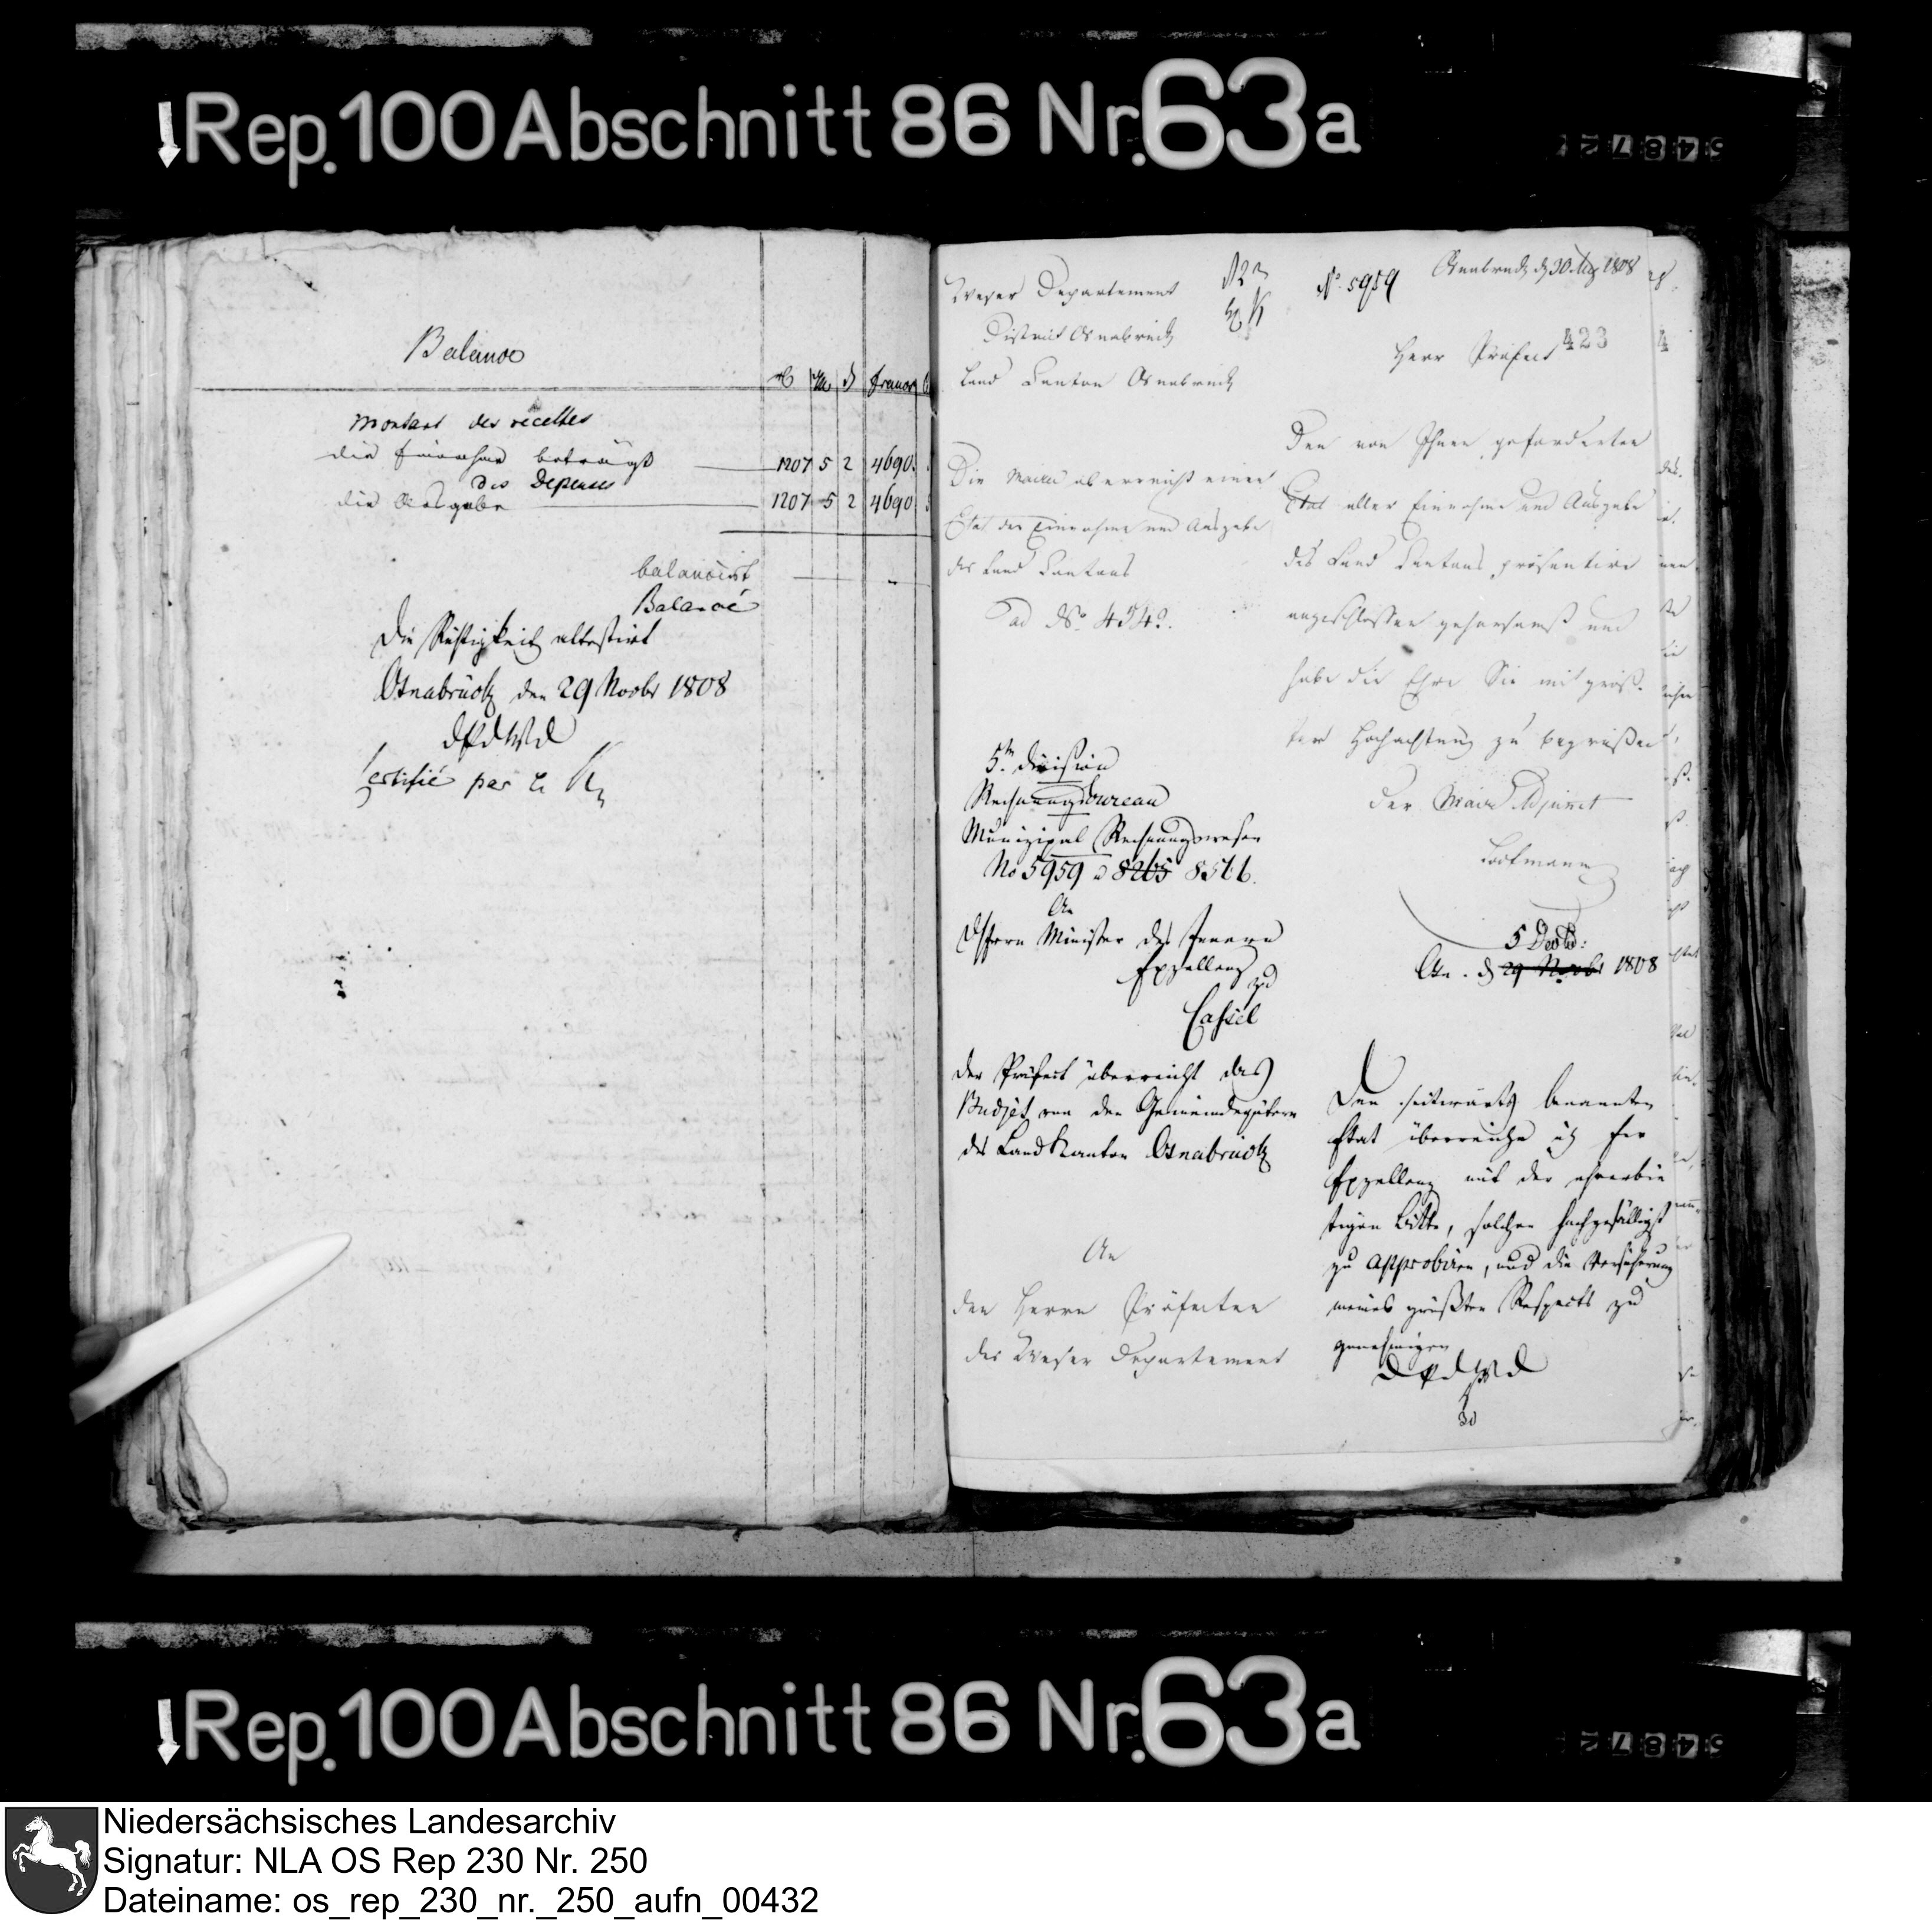 Rep. 100 Abschnitt 86 Nr. 63a
Balance
francs
Montant des recettes
die Einnahme beträgt 1207 5 2 4690
des Depenses
die Ausgabe 1207 5 2 4690
balancirt
Balancé
Die Richtigkeit attestirt
Osnabrück den 29 Novbr 1808
DPdWD
Certifié par
Weser Departement
District Osnabrück
Land Canton Osnabrück
Die Mairie überreicht einen
Etat der Einnahme und Ausgabe
des Land Cantons
ad No. 4542.
5te Division
Rechnungsbureau
Munizipal Rechnungswesen
No 5959 8265 8566.
An
Herrn Minister des Innern
Exzellenz
zu
Cassel
der Präfect überreicht das
Budjet von den Gemeindegütern
des Land Kanton Osnabrück
An
den Herrn Präfecten
des Weser Departement
No. 5959
Osnabrück d 30 1808
423
Herr Präfect
Den von Ihnen geforderten
Etat aller Einnahme und Ausgabe
des Land Cantons präsentire
angeschlossen gehorsamst und
habe die Ehre Sie mit größ-
ter Hochachtung zu begrüßen
Der Maire Adjunct
5 Decbr:
Osn. d 29 Novbr 1808
Den seitwärts benannten
Etat überreiche ich Ew
Exzellenz mit der ehrerbie
tigen Bitte, solchen hochgefälligst
zu approbiren, und die Versicherung
meines größten Respects zu
genehmigen
DPdWD
Rep. 100 Abschnitt 86 Nr. 63a
Niedersächsisches Landesarchiv
Signatur: NLA OS Rep 230 Nr. 250
Dateiname: os_rep_230_nr._250_aufn_00432